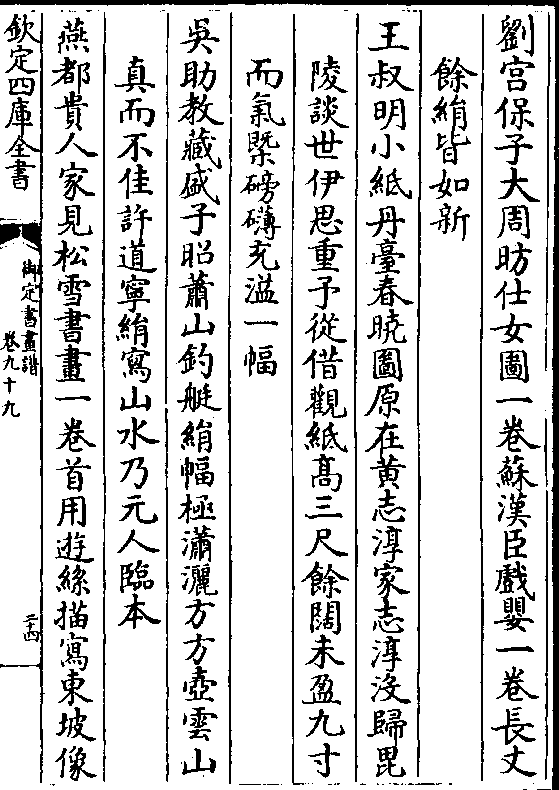 劉宫保子大周昉仕女圖一卷蘇漢臣戲嬰一卷長丈
餘絹皆如新
王叔明小紙丹臺春曉圖原在黄志淳家志淳沒歸毘
陵談世伊思重予從借觀紙髙三尺餘闊未盈九寸
而氣槩磅礴充溢一幅
吳助教藏盛子昭蕭山釣艇絹幅極瀟灑方方壺雲山
真而不佳許道寧絹寫山水乃元人臨本
燕都貴人家見松雪書畫一卷首用遊絲描寫東坡像
欽定四庫全書
御定書畫譜
卷九十九
二十四